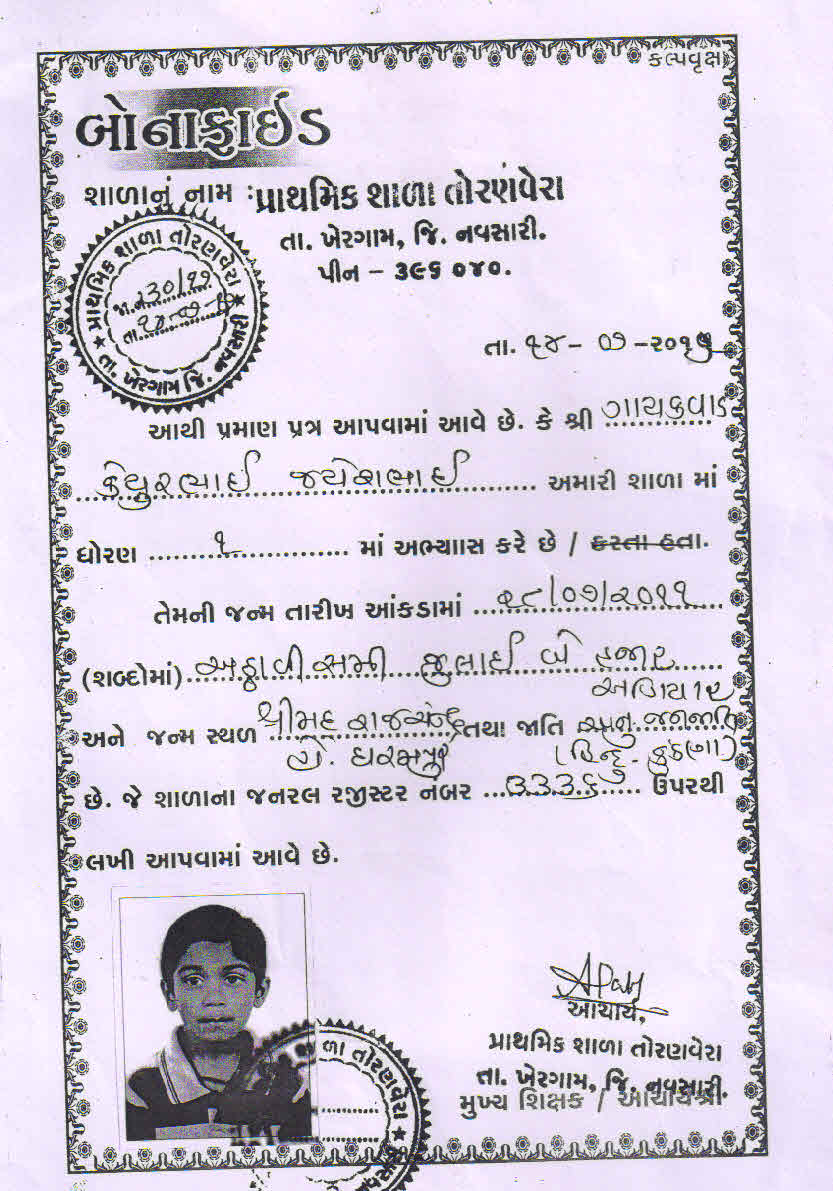 કલ્પવૃક્ષ
બોનાફાઈડ
શાળાનું નામ : પ્રાથમિક શાળા તોરણવેરા
તા. ખેરગામ, જિ. નવસારી.
પીન - ૩૯૬ ૦૪૦.
પ્રાથમિક શાળા તોરણવેરા
જા.નં. ૨૩૦/૧૭
તા. ૧૪-૦૭-૧૭
તા. ખેરગામ જિ. નવસારી
તા. ૧૪ - ૦૭ -૨૦૧૭
આથી પ્રમાણ પ્રત્ર આપવામાં આવે છે. કે શ્રી ગાયકવાડ
કેયુરભાઈ જયેશભાઈ અમારી શાળા માં
ધોરણ ૧ માં અભ્યાસ કરે છે / કરતા હતા.
તેમની જન્મ તારીખ આંકડામાં ૨૮/૦૭/૨૦૧૧
(શબ્દોમાં) અઠ્ઠાવીસમી જુલાઈ બે હજાર
અગિયાર
અને જન્મ સ્થળ શ્રીમદ રાજચંદ્ર તથા જાતિ અનુ. જનજાતિ
હો. ધરમપુર (હિન્દુ - કુકણા)
છે. જે શાળાના જનરલ રજીસ્ટર નંબર ૩૩૩૬ ઉપરથી
લખી આપવામાં આવે છે.
આચાર્ય,
પ્રાથમિક શાળા તોરણવેરા
તા. ખેરગામ, જિ. નવસારી.
મુખ્ય શિક્ષક / આચાર્યશ્રી
શાળા તોરણવેરા
નવસારી